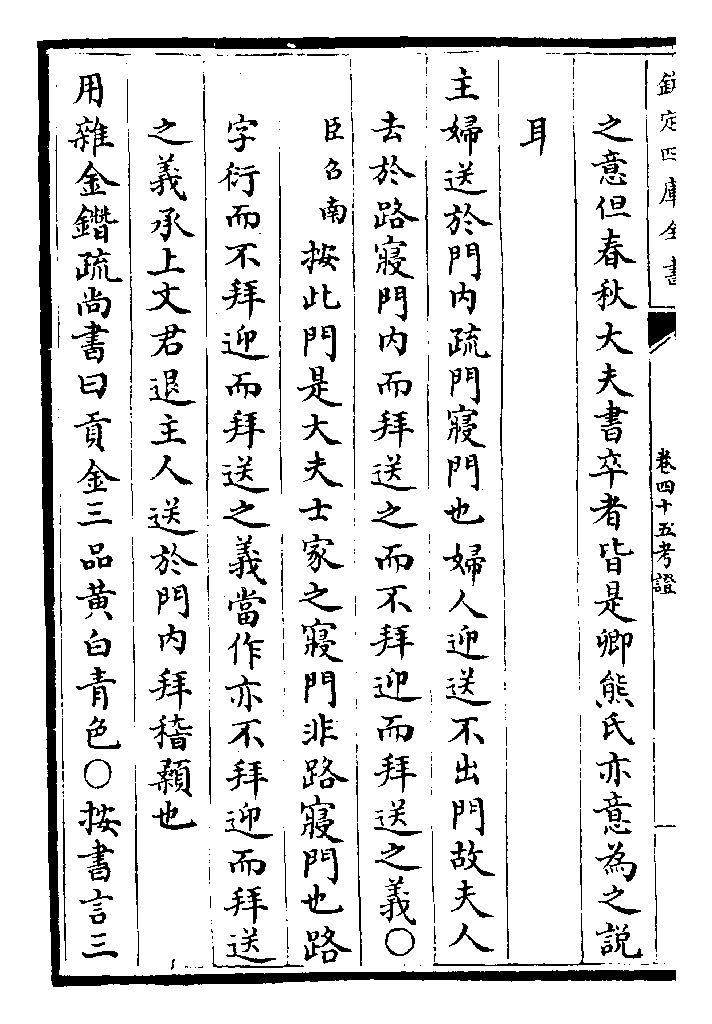 欽定四庫全書
卷四十五考證
之意但春秋大夫書卒者皆是卿熊氏亦意為之說
耳
主婦送於門内疏門寢門也婦人迎送不出門故夫人
去於路寢門内而拜送之而不拜迎而拜送之義○
臣召南按此門是大夫士家之寢門非路寢門也路
字衍而不拜迎而拜送之義當作亦不拜迎而拜送
之義承上文君退主人送於門内拜稽顙也
用雜金鐕疏尚書曰貢金三品黄白青色○按書言三